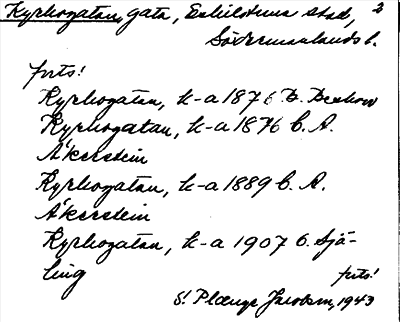 Kyrkogatan, gata, Eskilstuna stad, 2
Södermanlands l.
forts!
Kyrkogatan, k-a 1876 b.
Kyrkogatan, k-a 1876 b. A.
Åkerstein
Kyrkogatan, k-a 1889 b. A.
Åkerstein
Kyrkogatan, k-a 1907 b. Sjö-
ling
forts!
S! Jacobson, 1943